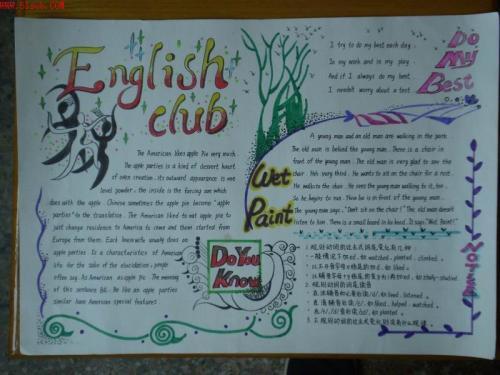 www.51sck.com
English club
The American likes apple Pie very much
The apple parties is a kind of dessert heart
of oven creation. its outward appearance is one
level powder, the inside is the forcing jam which
does with the apple. Chinese sometimes the apple pie become "apple
parties" to the translation. The American liked to eat apple pie to
just change residence to America to come and them started from
Europe from them. Each known wife usually does on
apple parties. Is a characteristics of American
life. for the sake of the elucidation people
often say As American as apple pie. The meaning
of this sentence Be like an apple parties
similar have American special features
I try to do my best each day.
In my work and in my play
And if I always do my best.
I needn't worry about a test.
Do My Best
Wet Paint
A young man and an old man are walking in the park.
The old man is behind the young man. There is a chair in
front of the young man. The old man is very glad to see the
chair. He's very tired. He wants to sit on the chair for a rest.
He walks to the chair. He sees the young man walking to it, too.
So he begins to run. Now he is in front of the young man.
The young man says, "Don't sit on the chair!" The old man doesn't
listen to him. There is a small board in its board. It says "Wet Paint!"
Do You Know
NOTED
1. 规则动词的过去式词尾变化有几种
一般情况下加ed, 如 watched, planted, climbed.
以不发音字母e结尾的加d, 如 liked.
以辅音字母y结尾的变y为i再加ed, 如 study-studied.
2. 规则动词词尾读音
在浊辅音和元音后读/d/, 如 lived, listened.
在清辅音后读/t/, 如 liked, helped, watched.
在/t/, /d/音后读/ɪd/, 如 planted.
3. 不规则动词的过去式变化